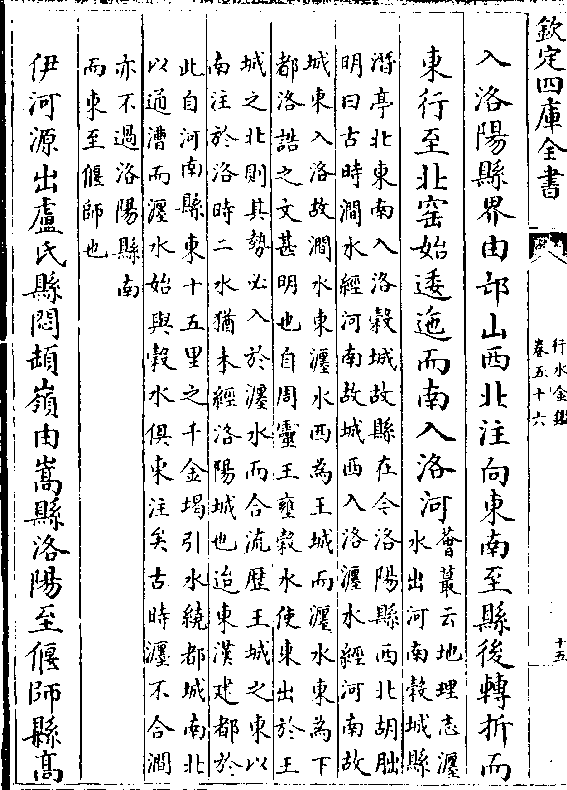 欽定四庫全書
行水金鑑
卷五十六
十五
入洛陽縣界由邙山西北注向東南至縣後轉折而
東行至北窑始逶迤而南入洛河
薈蕞云地理志瀍
水出河南穀城縣
潛亭北東南入洛穀城故縣在今洛陽縣西北胡朏
明曰古時澗水經河南故城西入洛瀍水經河南故
城東入洛故澗水東瀍水西為王城而瀍水東為下
都洛誥之文甚明也自周靈王壅穀水使東出於王
城之北則其勢必入於瀍水而合流歷王城之東以
南注於洛時二水猶未經洛陽城也迨東漢建都於
此自河南縣東十五里之千金堨引水繞都城南北
以通漕而瀍水始與穀水俱東注矣古時瀍不合澗
亦不過洛陽縣南
而東至偃師也
伊河源出盧氏縣悶頓嶺由嵩縣洛陽至偃師縣高